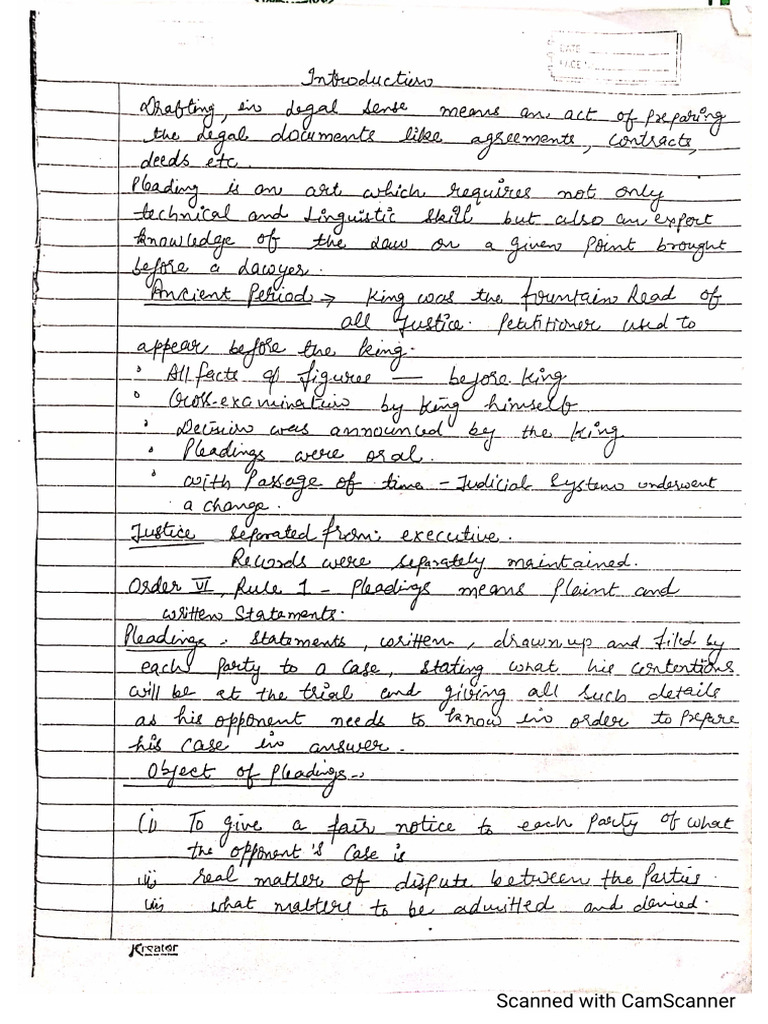 DATE
PAGE
Introduction
Drafting, in legal sense means an act of preparing
the legal documents like agreements, contracts,
deeds etc.
Pleading is an art which requires not only
technical and Linguistic skill but also an expert
knowledge of the Law on a given point brought
before a Lawyer.
Ancient Period → King was the fountain head of
all Justice. Petitioner used to
appear before the king.
• All facts & figures — before King
• Cross-examination by King himself
• Decision was announced by the King
• Pleadings were oral.
• with Passage of time - Judicial System underwent
a change.
Justice separated from executive.
Records were separately maintained.
Order VI, Rule 1 - Pleadings means Plaint and
written Statements.
Pleadings - statements, written, drawn up and filed by
each party to a case, stating what his contentions
will be at the trial and giving all such details
as his opponent needs to know in order to prepare
his case in answer.
Object of Pleadings -
(i) To give a fair notice to each party of what
the opponent's case is
(ii) real matter of dispute between the Parties.
(iii) what matters to be admitted and denied.
Kreator
Scanned with CamScanner